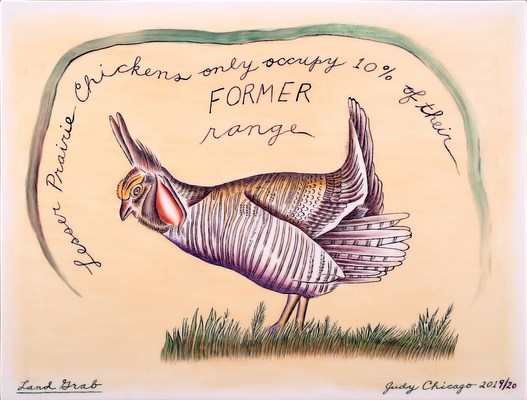 Lesser Prairie Chickens only occupy 10% of their
FORMER
range
Land Grab
Judy Chicago 2019/20